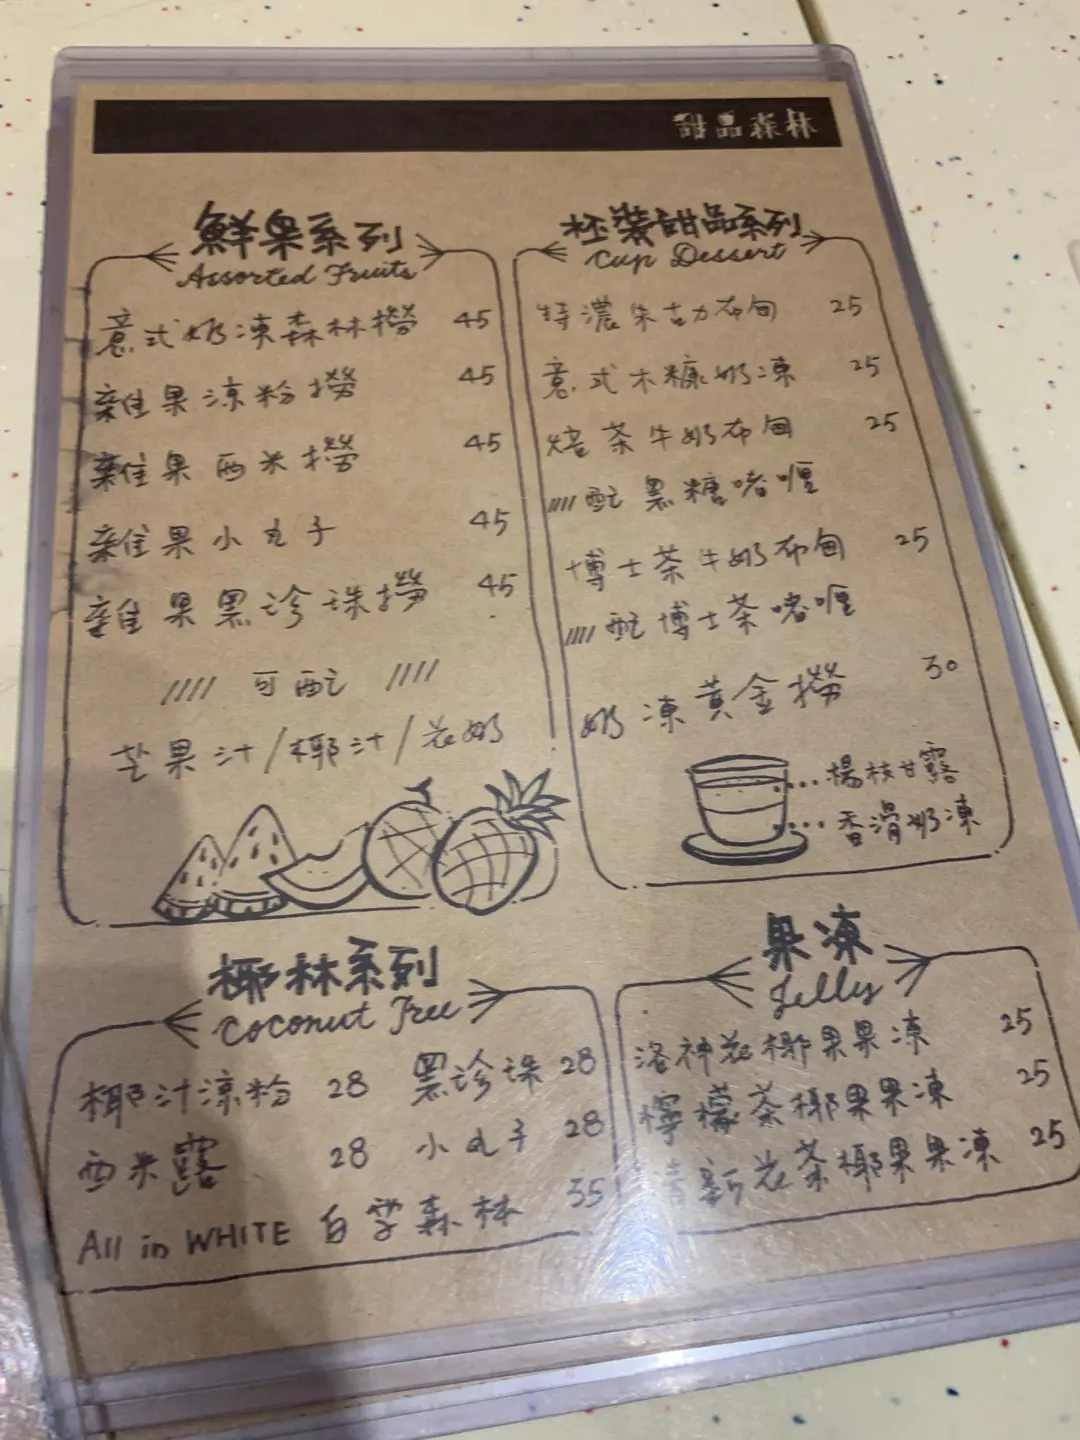 林森品甜
鮮果系列
Assorted Fruits
意式奶凍森林撈 45
雜果涼粉撈 45
雜果西米撈 45
雜果小丸子 45
雜果黑珍珠撈 45
//// 可配 ////
芒果汁/椰汁/花奶
杯裝甜品系列
Cup Dessert
特濃朱古力布甸 25
意式木糠奶凍 25
焙茶牛奶布甸 25
//// 配黑糖啫喱
博士茶牛奶布甸 25
//// 配博士茶啫喱
奶凍黃金撈 30
....楊枝甘露
....香滑奶凍
椰林系列
Coconut Tree
椰汁涼粉 28 黑珍珠 28
西米露 28 小丸子 28
All in WHITE 白雪森林 35
果凍
Jelly
洛神花椰果果凍 25
檸檬茶椰果果凍 25
清新花茶椰果果凍 25